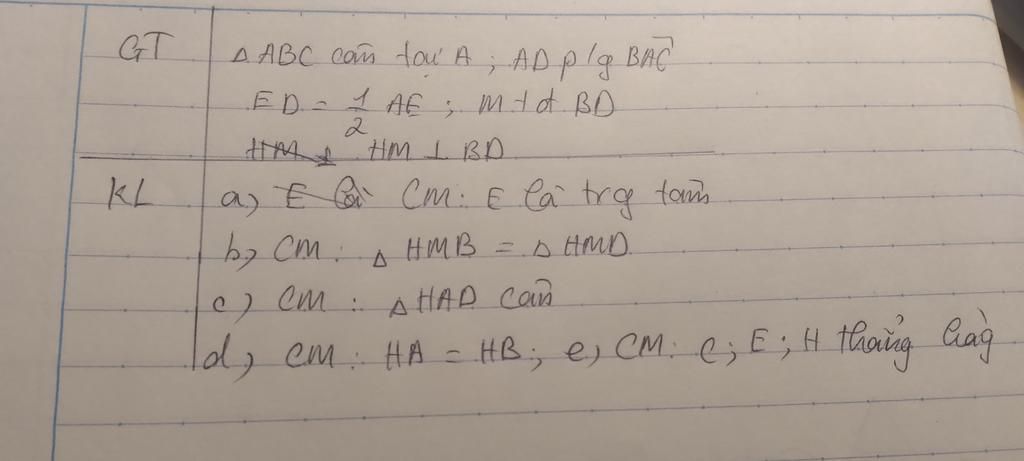 GT ΔABC cân tại A ; AD p/g BAC
ED = 1/2 AE ; M tđ BD
HM ⊥ HM ⊥ BD
KL a) E là CM: E là trg tâm
b) CM: Δ HMB = Δ HMD.
c) CM: Δ HAD cân
d) CM: HA = HB; e) CM: C; E; H thẳng hàg